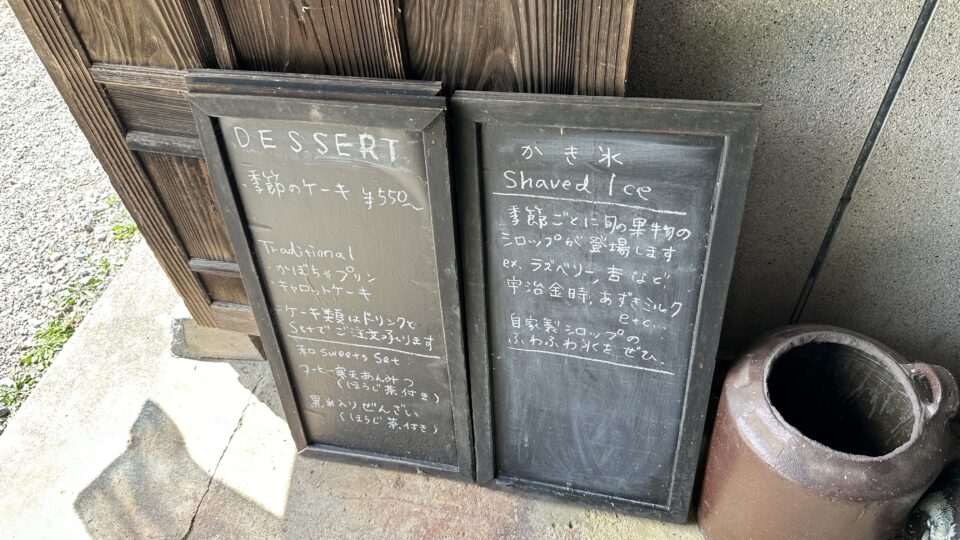 DESSERT
・季節のケーキ ¥550~
Traditional
・かぼちゃプリン
・キャロットケーキ
ケーキ類はドリンクと
Setでご注文承ります
和 sweets set
コーヒー寒天あんみつ
(ほうじ茶付き)
黒米入りぜんざい
(ほうじ茶付き)
かき氷
Shaved Ice
季節ごとに旬の果物の
シロップが登場します
ex. ラズベリー, 杏 など.
宇治金時, あずきミルク
etc...
自家製シロップの
ふわふわ氷を ぜひ.